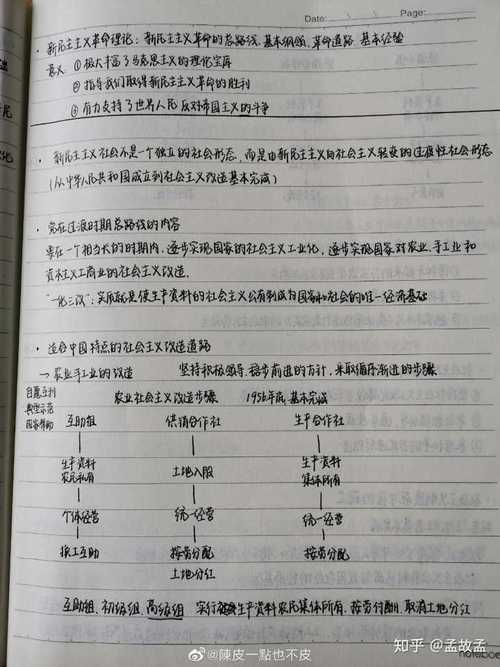 Date: Page:
· 新民主主义革命理论: 新民主主义革命的总路线、基本纲领、革命道路、基本经验
意义 ① 极大丰富了马克思主义的理论宝库
② 指导我们取得新民主主义革命的胜利
③ 有力支持了世界人民反对帝国主义的斗争
· 新民主主义社会不是一个独立的社会形态, 而是由新民主主义向社会主义转变的过渡性社会形态
(从中华人民共和国成立到社会主义改造基本完成)
· 党在过渡时期总路线的内容
要在一个相当长的时期内, 逐步实现国家的社会主义工业化, 逐步实现国家对农业、手工业和
资本主义工商业的社会主义改造.
"一化三改": 实质就是使生产资料的社会主义公有制成为国家和社会的唯一经济基础
· 适合中国特点的社会主义改造道路
一 农业手工业的改造 坚持积极领导、稳步前进的方针, 采取循序渐进的步骤
自愿互利 农业社会主义改造步骤 1956年底, 基本完成
典型示范 互助组 供销合作社 生产合作社
国家帮助
生产资料 土地入股 生产资料
农民私有 集体所有
个体经营 统一经营 统一经营
换工互助 按劳分配 按劳分配
土地分红
互助组、初级组、高级组 实行生产资料农民集体所有、按劳付酬、取消土地分红
知乎 @孟故孟
@陳皮一點也不皮
notebook